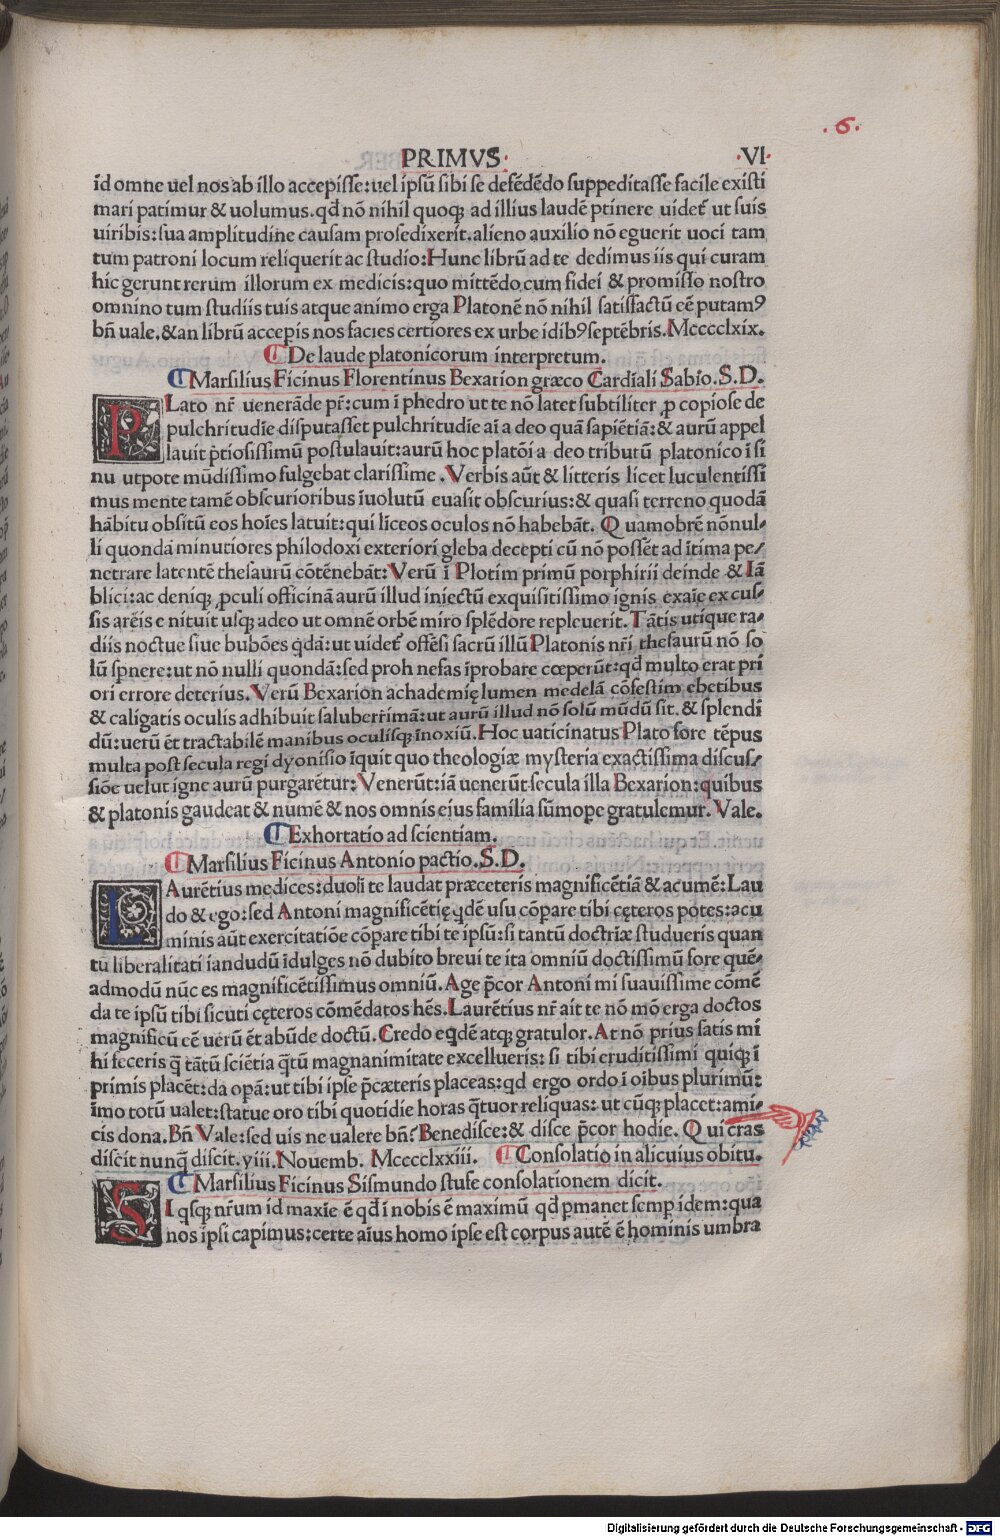 .6.
PRIMVS. .VI.
id omne uel nos ab illo accepisse: uel ipsũ sibi se defẽdẽdo suppeditasse facile existi
mari patimur & uolumus. qđ nõ nihil quoqꝫ ad illius laudẽ ꝑtinere uidet᷑ ut suis
uiribis: sua amplitudine causam prosedixerit. alieno auxilio nõ eguerit uoci tam
tum patroni locum reliquerit ac studio: Hunc librũ ad te dedimus iis qui curam
hic gerunt rerum illorum ex medicis: quo mittẽdo cum fidei & promisso nostro
omnino tum studiis tuis atque animo erga Platonẽ nõ nihil satisfactũ cẽ putamꝰ
bñ uale. & an librũ accepis nos facies certiores ex urbe idibꝰ septẽbris. Mcccclxix.
¶ De laude platonicorum interpretum.
¶ Marsilius Ficinus Florentinus Bexarion græco Cardĩali Sabio. S. D.
PLato nr̃ uenerãde pr̃: cum ĩ phedro ut te nõ latet subtiliter ꝓ copiose de
pulchritudĩe disputasset pulchritudĩe aĩ a deo quã sapiẽtiã: & aurũ appel
lauit p̃tiosissimũ postulauit: aurũ hoc platõi a deo tributũ platonico ĩ si
nu utpote mũdissimo fulgebat clarissime. Verbis aũt & litteris licet luculentissi
mus mente tamẽ obscurioribus ĩuolutũ euasit obscurius: & quasi terreno quodã
hãbitu obsitũ eos hoĩes latuit: qui lĩceos oculos nõ habebãt. Quamobrẽ nõnul⸗
li quondã minutiores philodoxi exteriori gleba decepti cũ nõ possẽt ad ĩtima pe⸗
netrare latentẽ thesaurũ cõtẽnebãt: Verũ ĩ Plotim primũ porphirii deinde & Iã
blici: ac deniqꝫ ꝓculi officinã aurũ illud iniectũ exquisitissimo ignis exaĩe excus⸗
sis arẽis enituit usqꝫ adeo ut omnẽ orbẽ miro splẽdore repleuerit. Tãtis utique ra⸗
diis noctue siue bubões qᷓdã: ut uidet᷑ offẽsi sacrũ illũ Platonis nr̃i thesaurũ nõ so
lũ spnere: ut nõ nulli quondã: sed proh nefas ĩprobare cœperũt: qđ multo erat pri
ori errore deterius. Verũ Bexarion achademię lumen medelã cõfestim ebetibus
& caligatis oculis adhibuit saluberr̃imã: ut aurũ illud nõ solũ mũdũ sit. & splendi
dũ: uerũ ẽt tractabilẽ manibus oculisqꝫ ĩnoxiũ. Hoc uaticinatus Plato fore tẽpus
multa post secula regi dyonisio ĩquit quo theologiæ mysteria exactissima discus⸗
siõe uelut igne aurũ purgarẽtur: Venerũt: iã uenerũt secula illa Bexarion: quibus
& platonis gaudeat & numẽ & nos omnis eius familia sũmope gratulemur. Vale.
¶ Exhortatio ad scientiam.
¶ Marsilius Ficinus Antonio pactio. S. D.
LAurẽtius medices: duoli te laudat præceteris magnificẽtiã & acumẽ: Lau
do & ego: sed Antoni magnificẽtię qdẽ usu cõpare tibi cęteros potes: acu
minis aũt exercitatiõe cõpare tibi te ipsũ: si tantũ doctrĩæ studueris quan
tũ liberalitati iandudũ ĩdulges nõ dubito breui te ita omniũ doctissimũ fore quẽ⸗
admodũ nũc es magnificẽtissimus omniũ. Age p̃cor Antoni mi suauissime cõmẽ
da te ipsũ tibi sicuti cęteros cõmẽdatos hẽs. Laurẽtius nr̃ ait te nõ mõ erga doctos
magnificũ cẽ uerũ ẽt abũde doctũ. Credo eqdẽ atqꝫ gratulor. At nõ prius satis mi
hi feceris q̃ tãtũ sciẽtia q̃tũ magnanimitate excellueris: si tibi eruditissimi quiqꝫ ĩ
primis placẽt: da opã: ut tibi ipse p̃cæteris placeas: qđ ergo ordo ĩ oibus plurimũ:
ĩmo totũ ualet: statue oro tibi quotidie horas q̃tuor reliquas: ut cũqꝫ placet: ami⸗
cis dona. Bñ Vale: sed uis ne ualere bñ? Benedisce: & disce p̃cor hodie. Qui cras
discit nunq̃ discit. yiii. Nouemb. Mcccclxxiii. ¶ Consolatio in alicuius obitu.
¶ Marsilius Ficinus Sismundo stufe consolationem dicit.
SI qsqꝫ nr̃um id maxĩe ẽ qđ ĩ nobis ẽ maximũ qđ ꝑmanet semp idem: qua
nos ipsi capimus: certe aĩus homo ipse est corpus autẽ ẽ hominis umbra
Digitalisierung gefördert durch die Deutsche Forschungsgemeinschaft - DFG